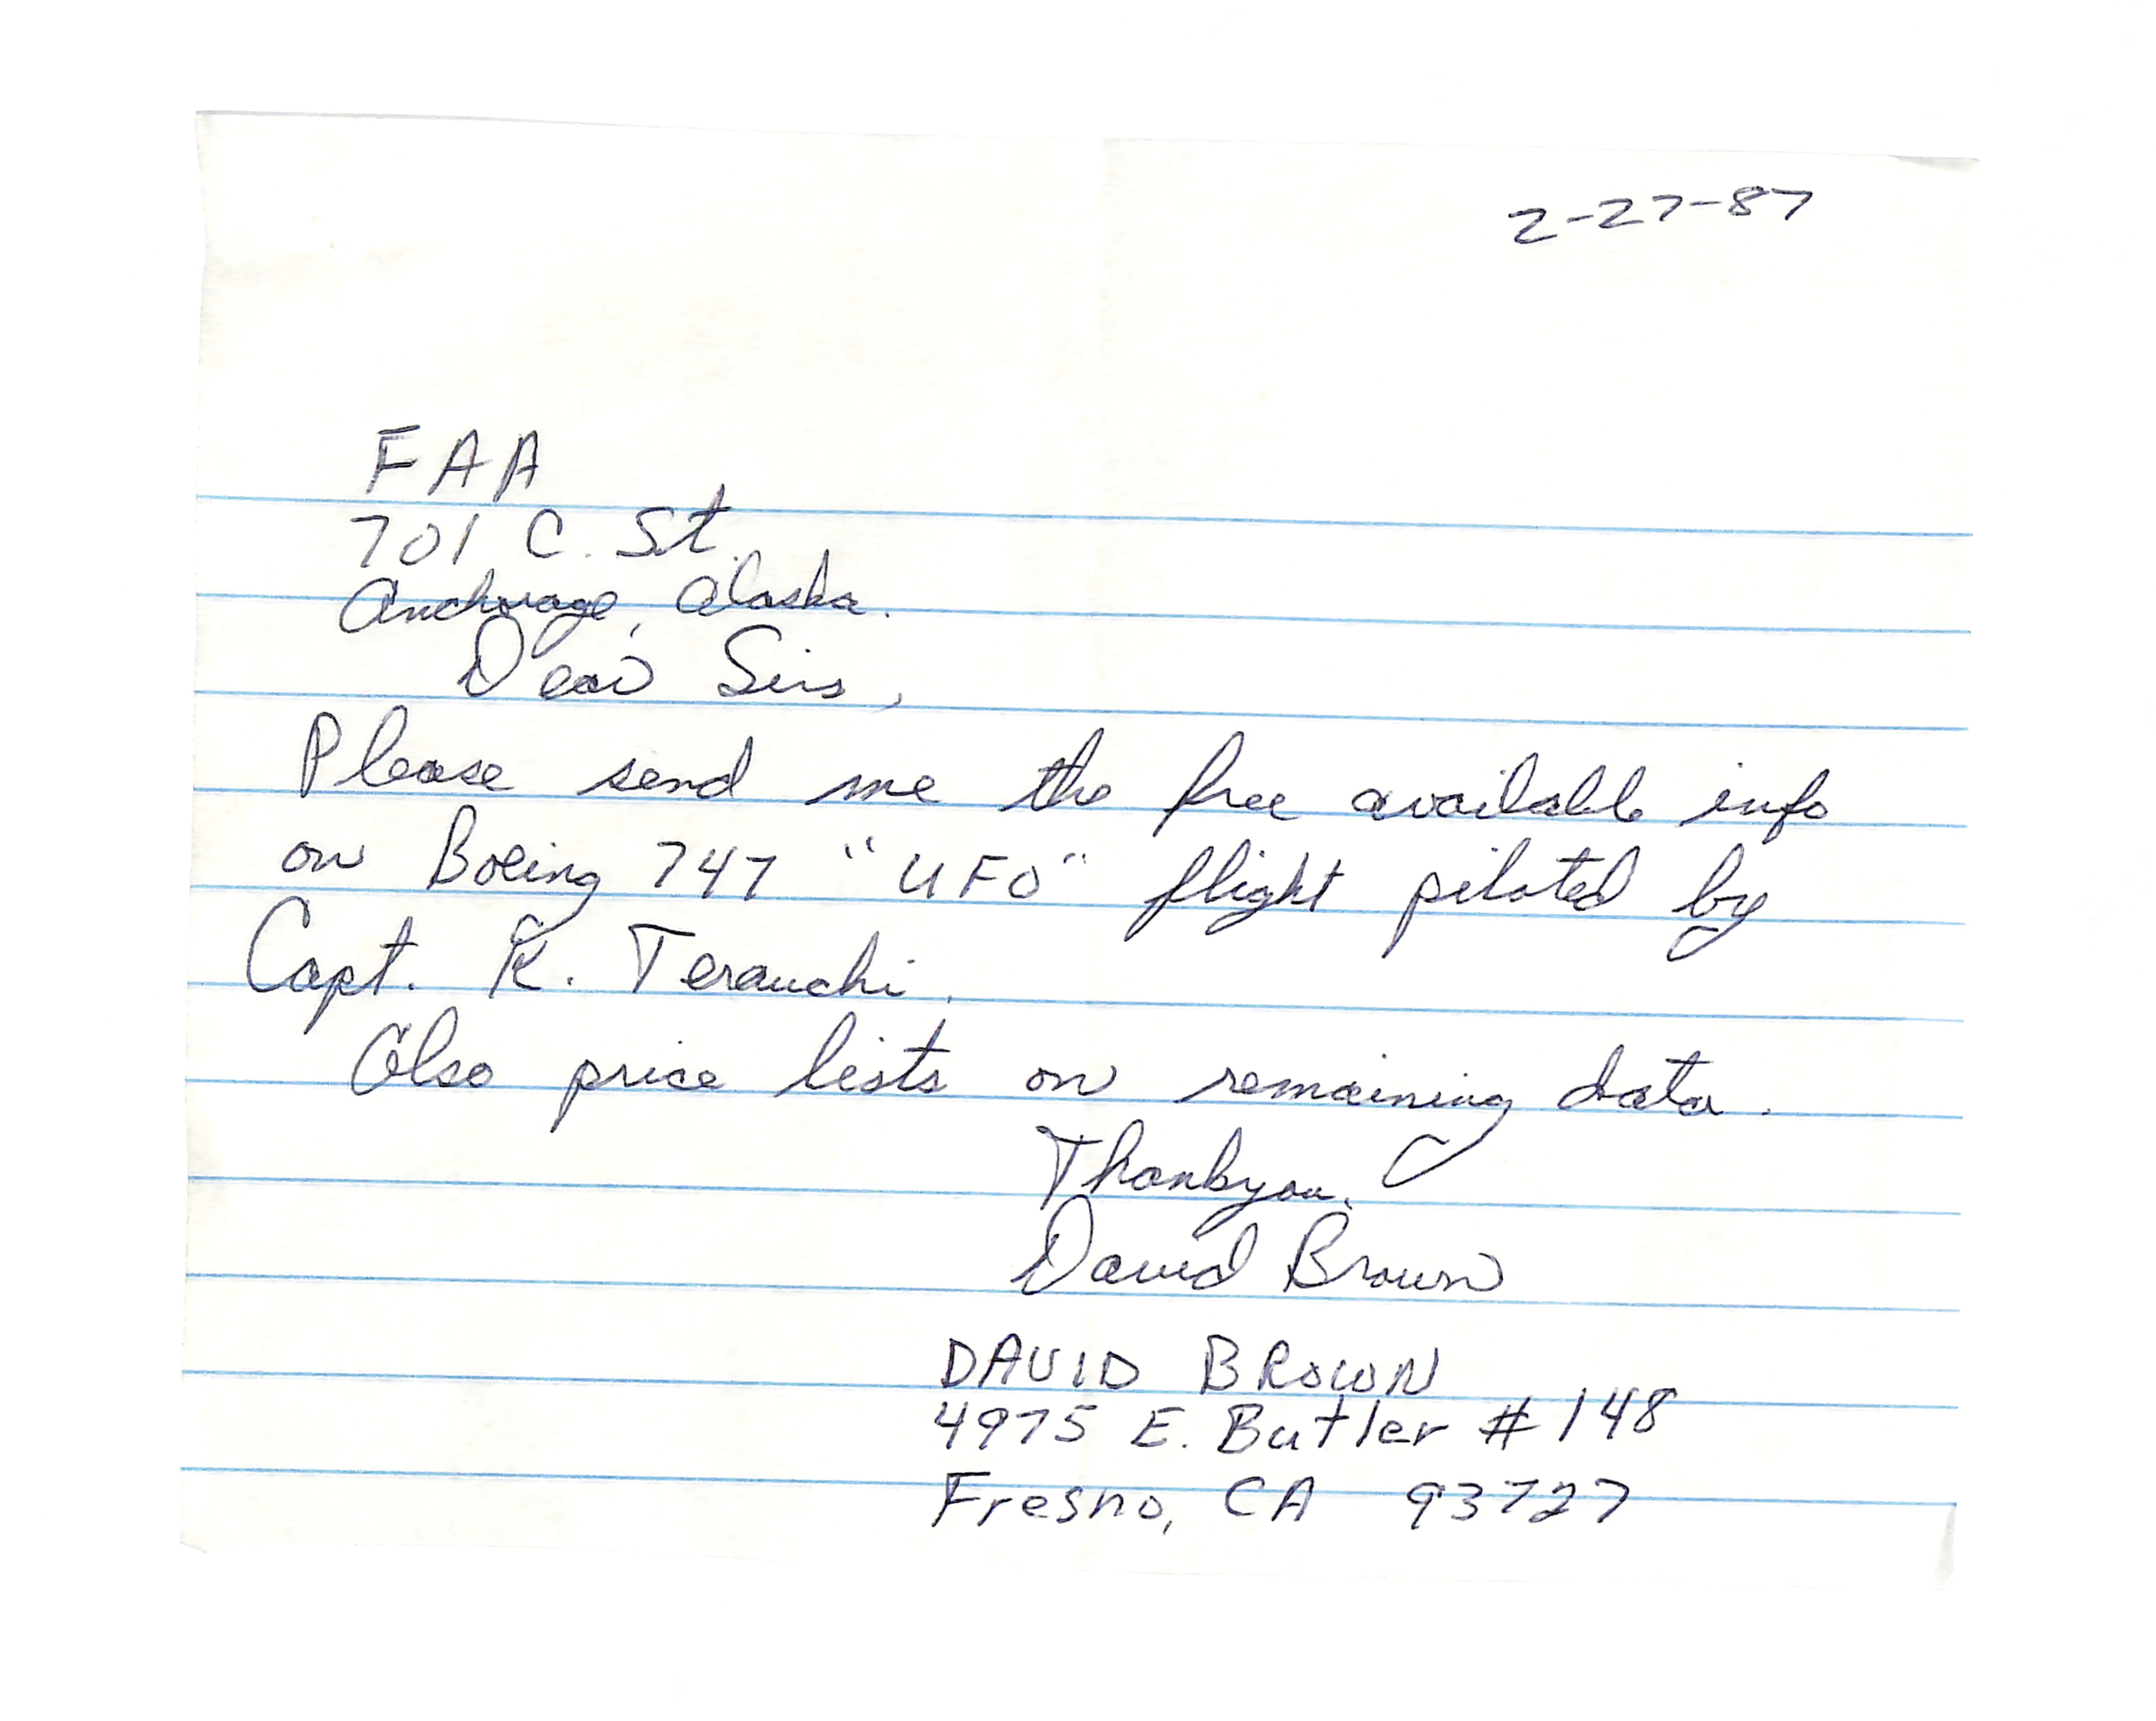 2-27-87
FAA
701 C. St.
Anchorage, Alaska.
Dear Sirs,
Please send me the free available info
on Boeing 747 "UFO" flight piloted by
Capt. K. Terauchi.
Also price lists on remaining data.
Thankyou,
David Brown
DAVID BROWN
4975 E. Butler #148
Fresno, CA 93727